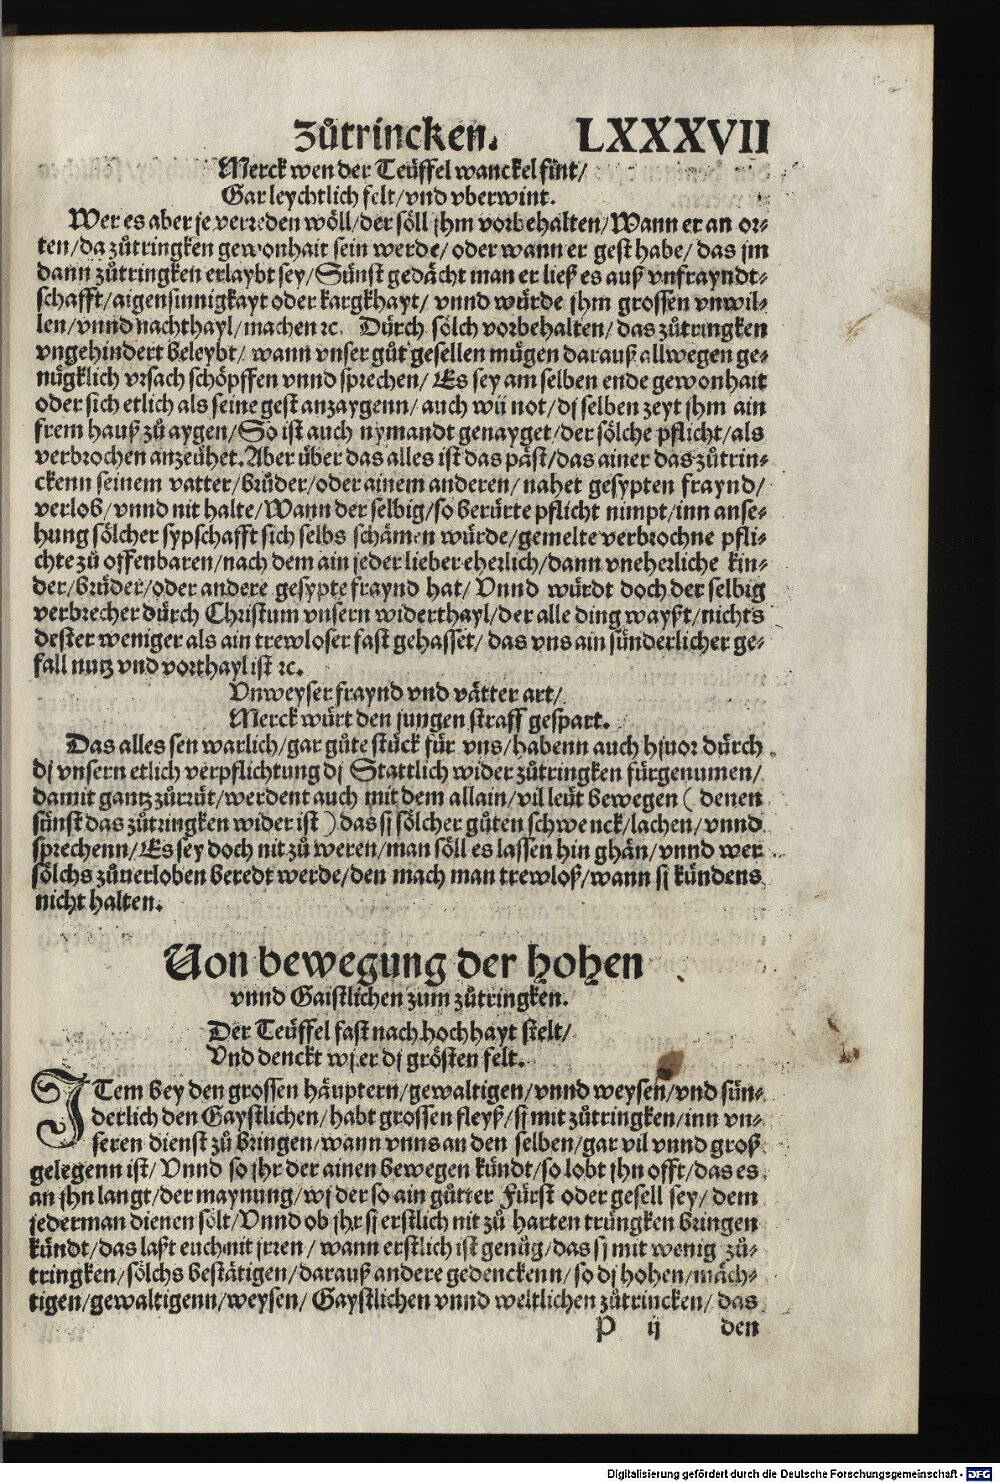 Zůtrincken. LXXXVII
Merck wen der Teüffel wanckel sint/
Gar leychtlich felt/vnd vberwint.
Wer es aber je verreden wöll/der söll jhm vorbehalten/Wann er an or⸗
ten/da zůtringken gewonhait sein werde/oder wann er gest habe/das jm
dann zůtringken erlaybt sey/Sünst gedächt man er ließ es auß vnfrayndt⸗
schafft/aigensinnigkayt oder kargkhayt/vnnd würde jhm grossen vnwil⸗
len/vnnd nachthayl/machen ꝛc. Dürch sölch vorbehalten/das zůtringken
vngehindert beleybt/wann vnser gůt gesellen mügen darauß allwegen ge⸗
nügklich vrsach schöpffen vnnd sprechen/Es sey am selben ende gewonhait
oder sich etlich als seine gest anzaygenn/auch wü not/dj selben zeyt jhm ain
frem hauß zů aygen/So ist auch nymandt genayget/der sölche pflicht/als
verbrochen anzeühet. Aber über das alles ist das päst/das ainer das zůtrin⸗
ckenn seinem vatter/brüder/oder ainem anderen/nahet gesypten fraynd/
verlob/vnnd nit halte/Wann der selbig/so berürte pflicht nimpt/inn anse⸗
hung sölcher sypschafft sich selbs schämen würde/gemelte verbrochne pfli⸗
chte zů offenbaren/nach dem ain jeder lieber eherlich/dann vneherliche kin⸗
der/brüder/oder andere gesypte fraynd hat/Vnnd würdt doch der selbig
verbrecher dürch Christum vnsern widerthayl/der alle ding wayßt/nichts
dester weniger als ain trewloser fast gehasset/das vns ain sünderlicher ge⸗
fall nutz vnd vorthayl ist ꝛc.
Vnweyser fraynd vnd vätter art/
Merck würt den jungen straff gespart.
Das alles sen warlich/gar gůte stück für vns/habenn auch hjuor dürch
dj vnsern etlich verpflichtung dj Stattlich wider zůtringken fürgenumen/
damit gantz zůrrüt/werdent auch mit dem allain/vil leüt bewegen (denen
sünst das zůtringken wider ist) das sj sölcher gůten schwenck/lachen/vnnd
sprechenn/Es sey doch nit zů weren/man söll es lassen hin ghän/vnnd wer
sölchs zůuerloben beredt werde/den mach man trewloß/wann sj kündens
nicht halten.
Von bewegung der hohen
vnnd Gaistlichen zum zůtringken.
Der Teüffel fast nach hochhayt stelt/
Vnd denckt wj er dj grösten felt.
ITem bey den grossen häuptern/gewaltigen/vnnd weysen/vnd sün⸗
derlich den Gaystlichen/habt grossen fleyß/sj mit zůtringken/inn vn⸗
seren dienst zů bringen/wann vnns an den selben/gar vil vnnd groß
gelegenn ist/Vnnd so jhr der ainen bewegen kündt/so lobt jhn offt/das es
an jhn langt/der maynung/wj der so ain gůtter Fürst oder gesell sey/dem
jederman dienen sölt/Vnnd ob jhr sj erstlich nit zů harten trüngken bringen
kündt/das laßt euch nit jrren/wann erstlich ist genůg/das sj mit wenig zů⸗
tringken/sölchs bestätigen/darauß andere gedenckenn/so dj hohen/mäch⸗
tigen/gewaltigenn/weysen/Gaystlichen vnnd weltlichen zůtrincken/das
P ij den
Digitalisierung gefördert durch die Deutsche Forschungsgemeinschaft - DFG